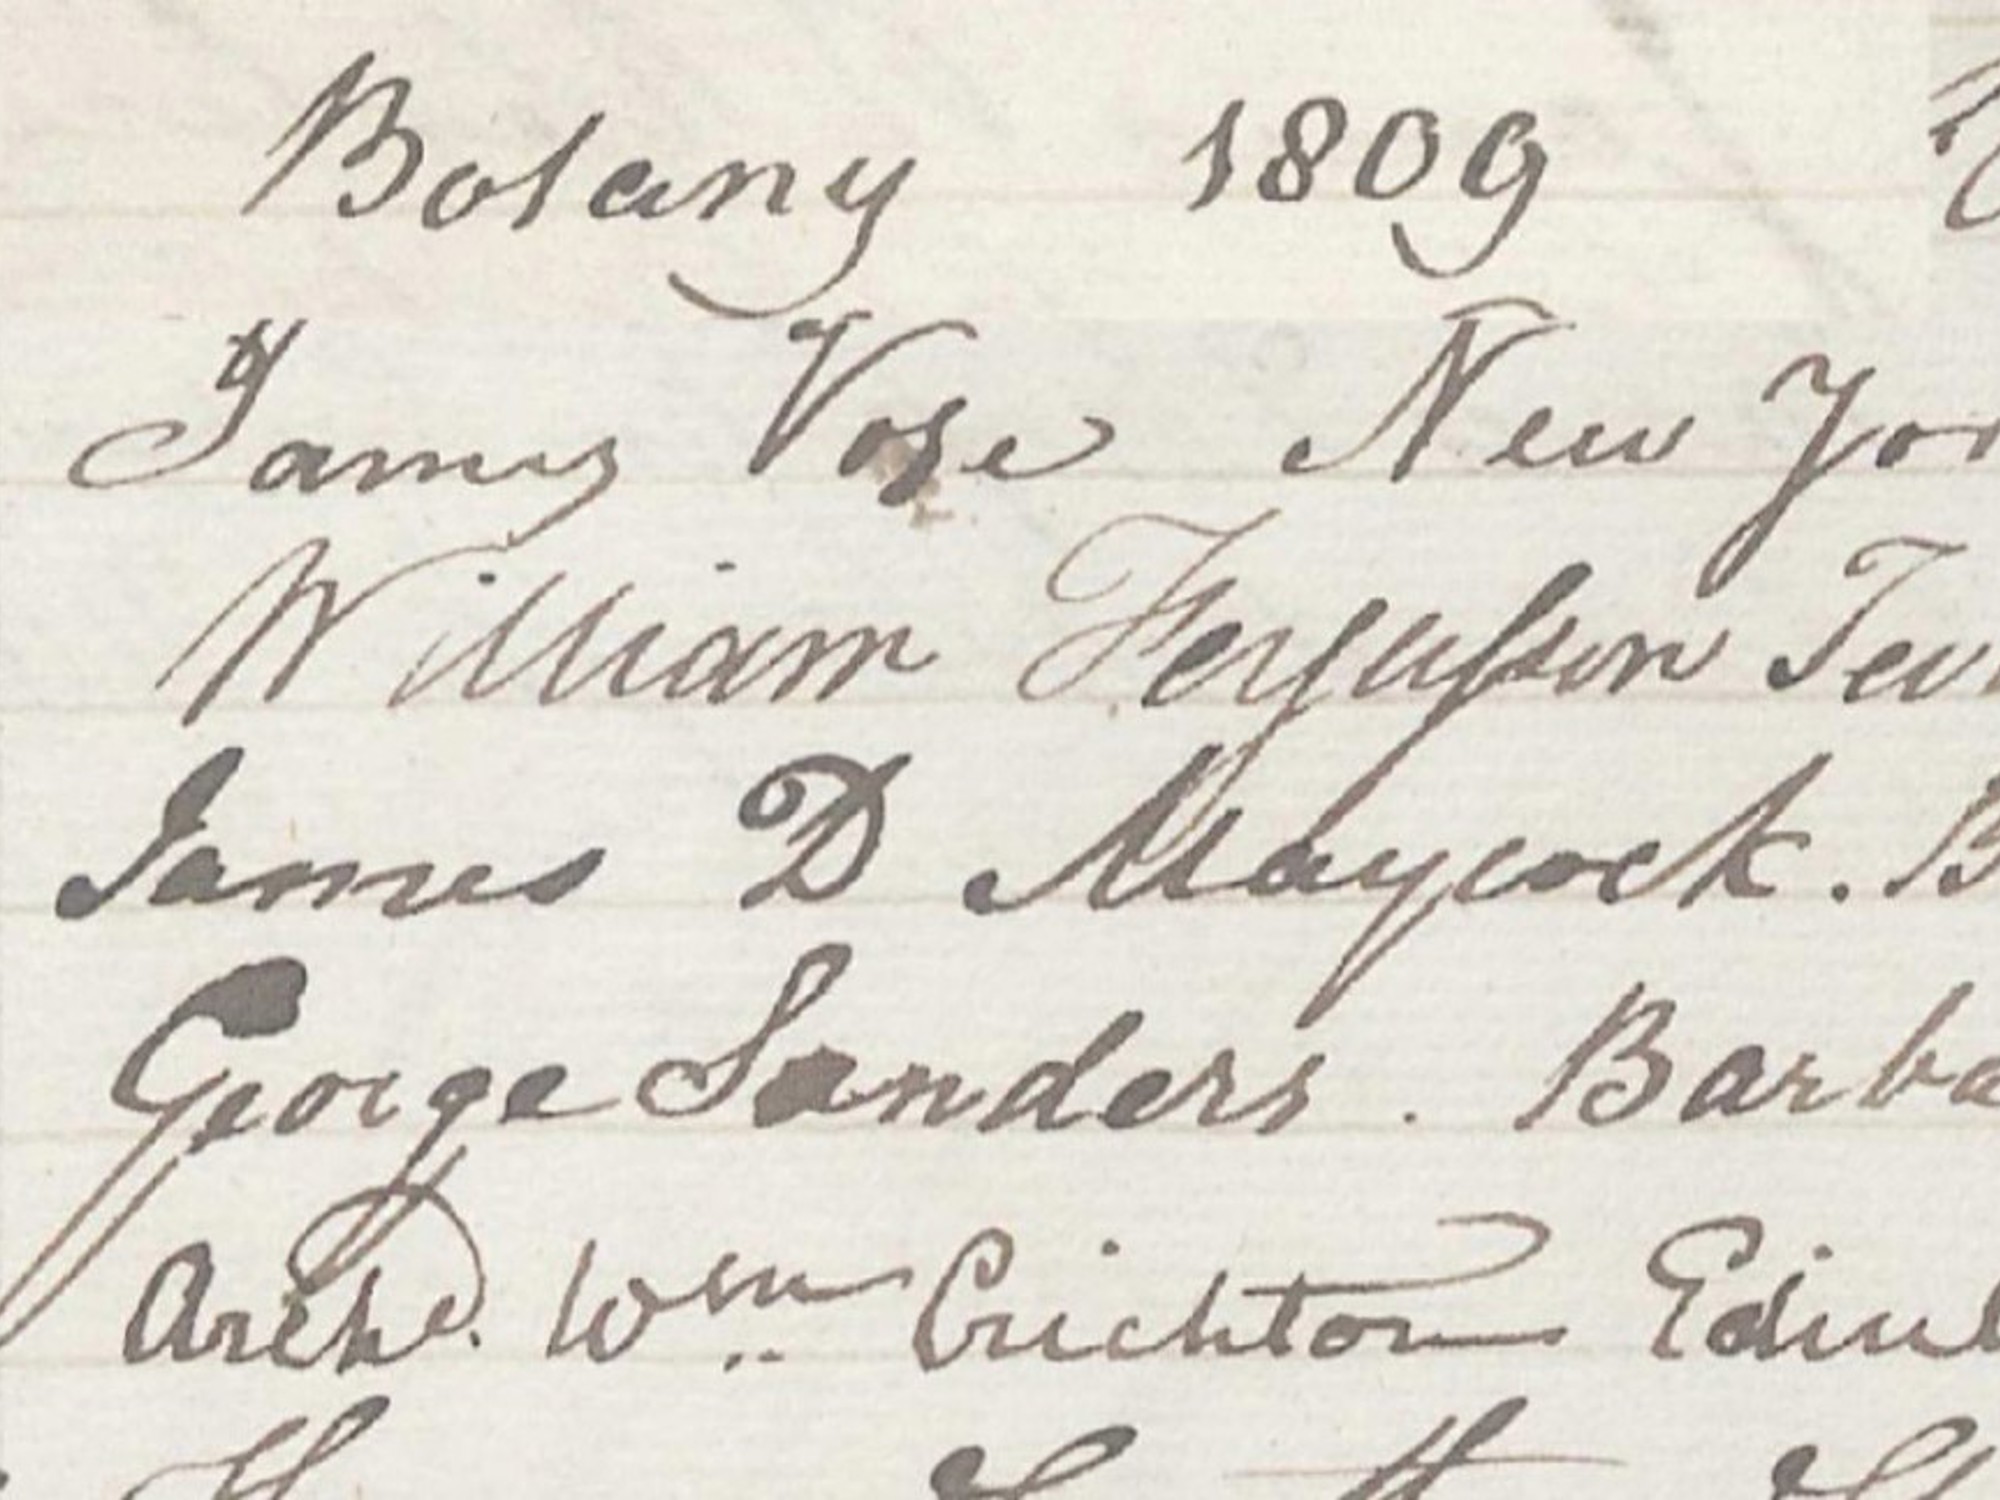 Botany 1809
James Vose New Yor
William Fergusson Tev
James D Maycock. B
George Sanders. Barba
Archd. Wm. Crichton Edinb